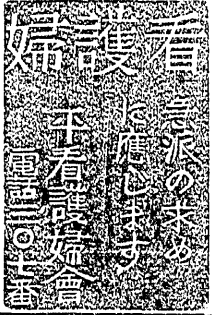 看護婦
急派の求め
に應じます
平看護婦會
電話三〇七番